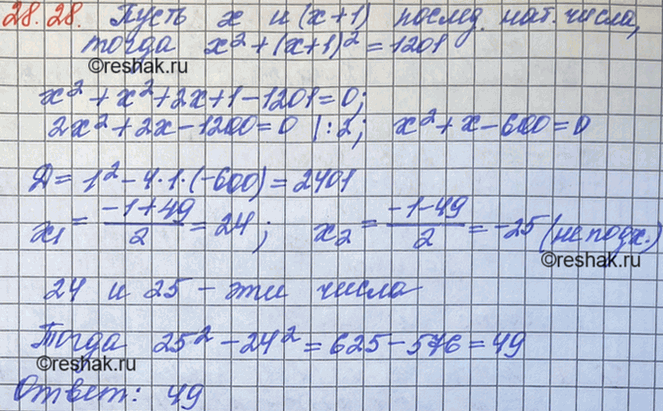 28.28. Пусть x и (x+1) послед. нат. числа,
тогда x² + (x+1)² = 1201
©reshak.ru
x² + x² + 2x + 1 - 1201 = 0;
2x² + 2x - 1200 = 0 |:2; x² + x - 600 = 0
Д = 1² - 4·1·(-600) = 2401
x₁ = (-1+49)/2 = 24; x₂ = (-1-49)/2 = -25 (не подх.)
©reshak.ru
24 и 25 - эти числа
Тогда 25² - 24² = 625 - 576 = 49
©reshak.ru
Ответ: 49